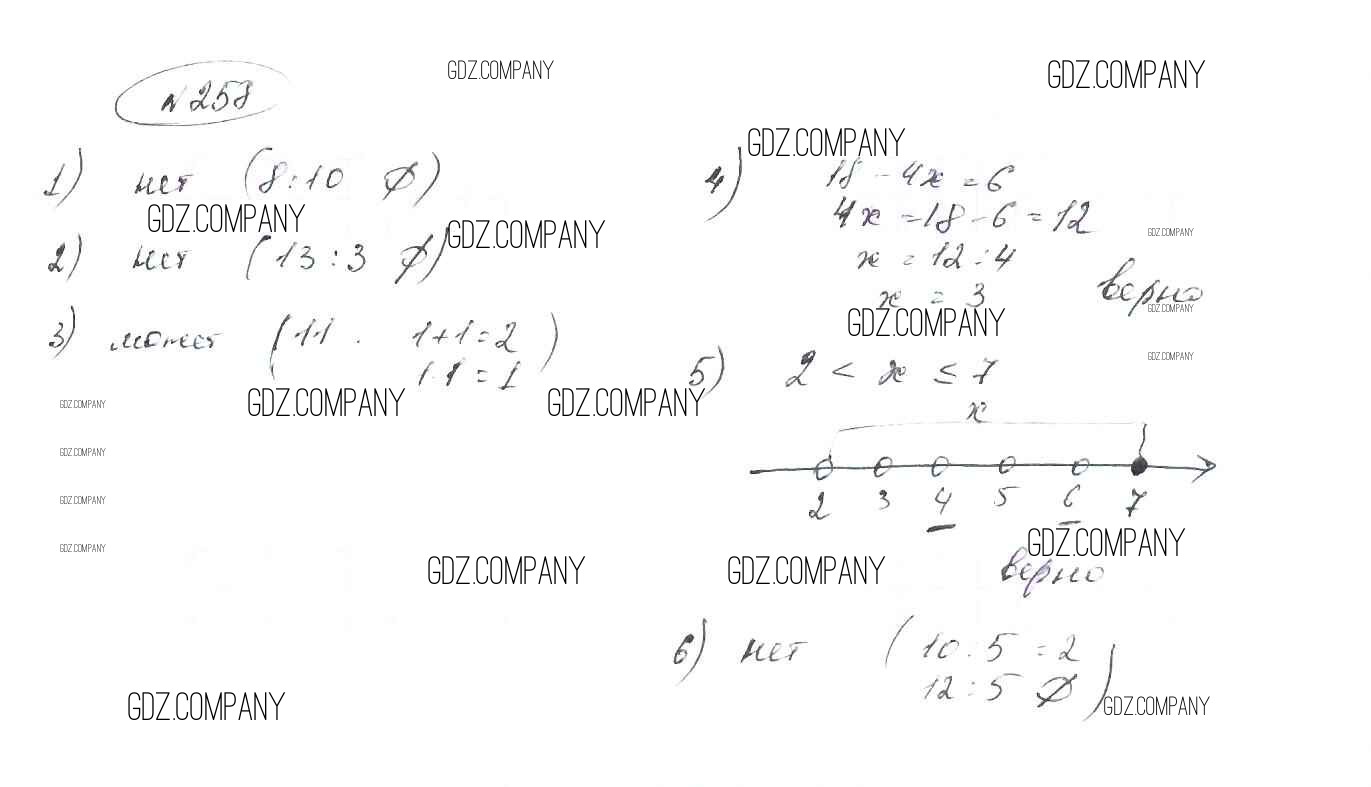 GDZ.COMPANY
GDZ.COMPANY
№258
GDZ.COMPANY
1) нет (8:10 Ø)
GDZ.COMPANY
GDZ.COMPANY
2) нет (13:3 Ø)
3) может (11. 1+1=2
1·1=1)
GDZ.COMPANY
GDZ.COMPANY
GDZ.COMPANY
GDZ.COMPANY
GDZ.COMPANY
GDZ.COMPANY
4) 18-4x=6
4x=18-6=12
GDZ.COMPANY
x=12:4
x=3 верно
GDZ.COMPANY
GDZ.COMPANY
GDZ.COMPANY
5) 2<x≤7
x
2 3 4 5 6 7
GDZ.COMPANY
верно
GDZ.COMPANY
GDZ.COMPANY
6) нет (10:5=2
12:5 Ø)
GDZ.COMPANY
GDZ.COMPANY